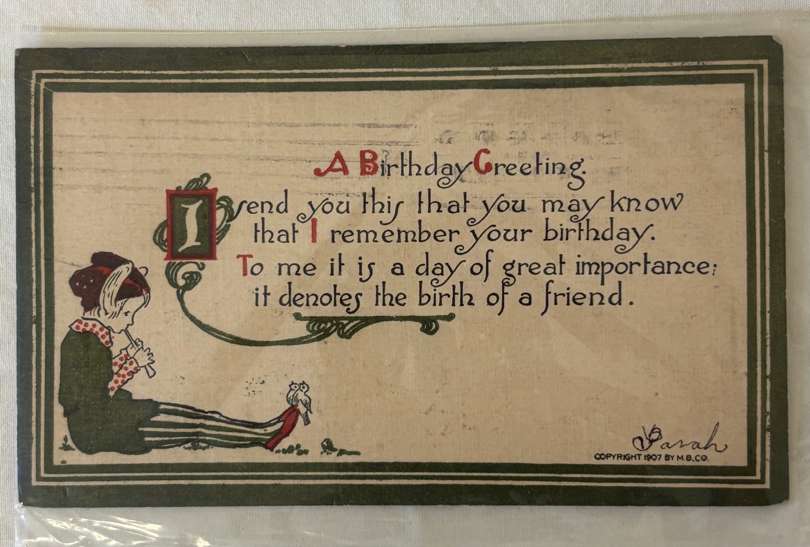 A Birthday Greeting.
I send you this that you may know
that I remember your birthday.
To me it is a day of great importance;
it denotes the birth of a friend.
Sarah
COPYRIGHT 1907 BY M.B.CO.